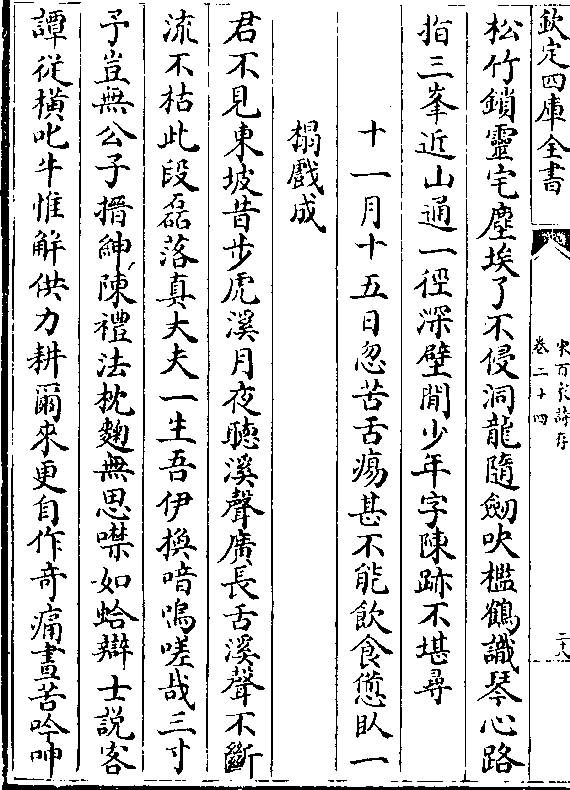 欽定四庫全書
宋百家詩存
卷二十四
二十八
松竹鎖靈宅塵埃了不侵洞龍隨劒吠檻鶴識琴心路
指三峯近山通一徑深壁間少年字陳跡不堪尋
十一月十五日忽苦舌瘍甚不能飲食憊臥一
榻戲成
君不見東坡昔步虎溪月夜聽溪聲廣長舌溪聲不斷
流不枯此段磊落真大夫一生吾伊換喑嗚嗟哉三寸
予豈無公子搢紳陳禮法枕麴無思噤如蛤辯士説客
譚從橫叱牛惟解供力耕爾來更自作奇痛晝苦吟呻